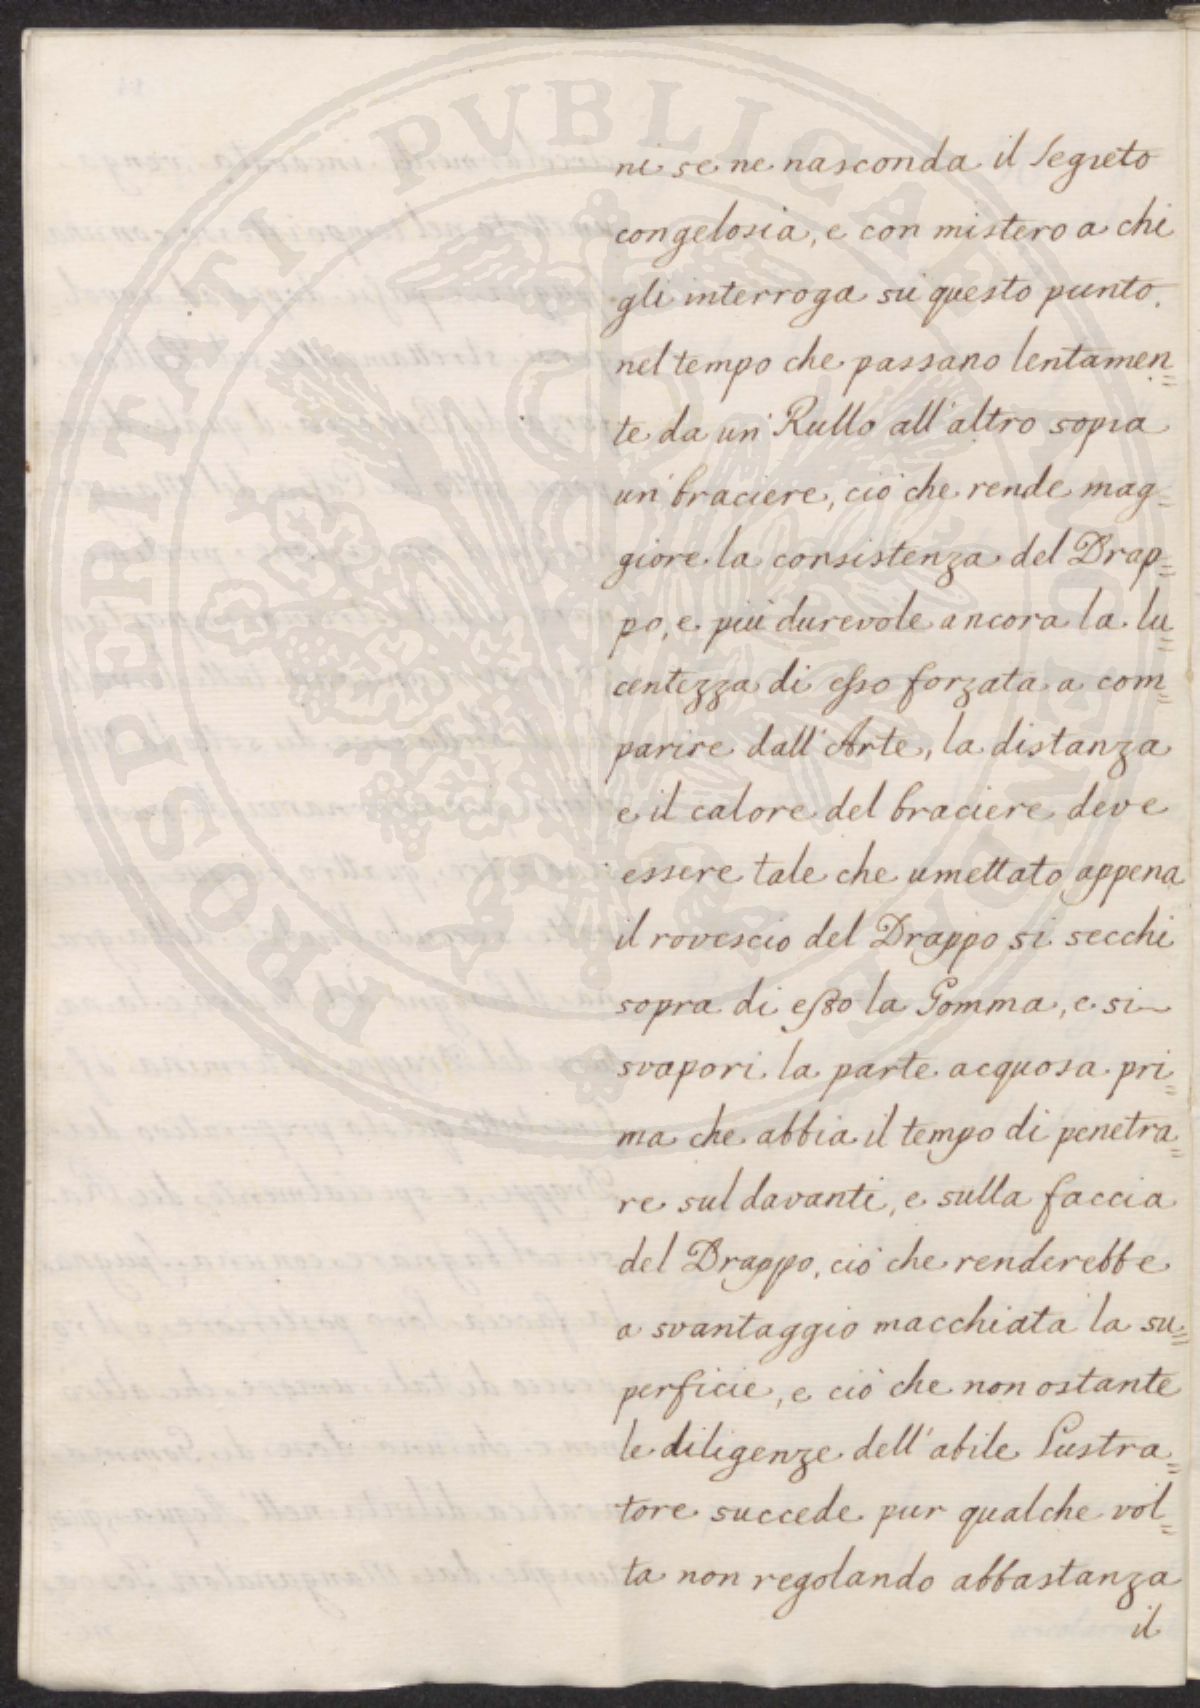 PROSPERITATI PUBLICAE AUGENDAE
ni se ne nasconda il Segreto
con gelosia, e con mistero a chi
gli interroga su questo punto.
nel tempo che passano lentamen=
te da un' Rullo all'altro sopra
un' braciere, ciò che rende mag=
giore la consistenza del Drap=
po, e più durevole ancora la lu=
centezza di esso forzata a com=
parire dall'Arte, la distanza
e il calore del braciere deve
essere tale che umettato appena
il rovescio del Drappo si secchi
sopra di esso la Gomma, e si
svapori la parte acquosa pri=
ma che abbia il tempo di penetra=
re sul davanti, e sulla faccia
del Drappo, ciò che renderebbe
a svantaggio macchiata la su=
perficie, e ciò che non ostante
le diligenze dell'abile Lustra=
tore succede pur qualche vol=
ta non regolando abbastanza
il